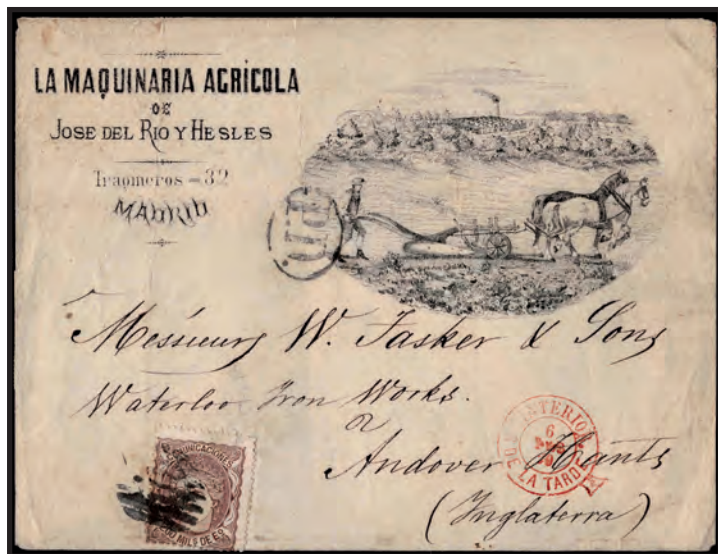 LA MAQUINARIA AGRÍCOLA
DE
JOSE DEL RIO Y HESLES
Tragineros = 32
MADRID
Messieurs W. Tasker & Sons
Waterloo Iron Works.
a
Andover Hants
(Inglaterra)
INTERIOR
6
DE LA TARDE
COMUNICACIONES
MILS DE E